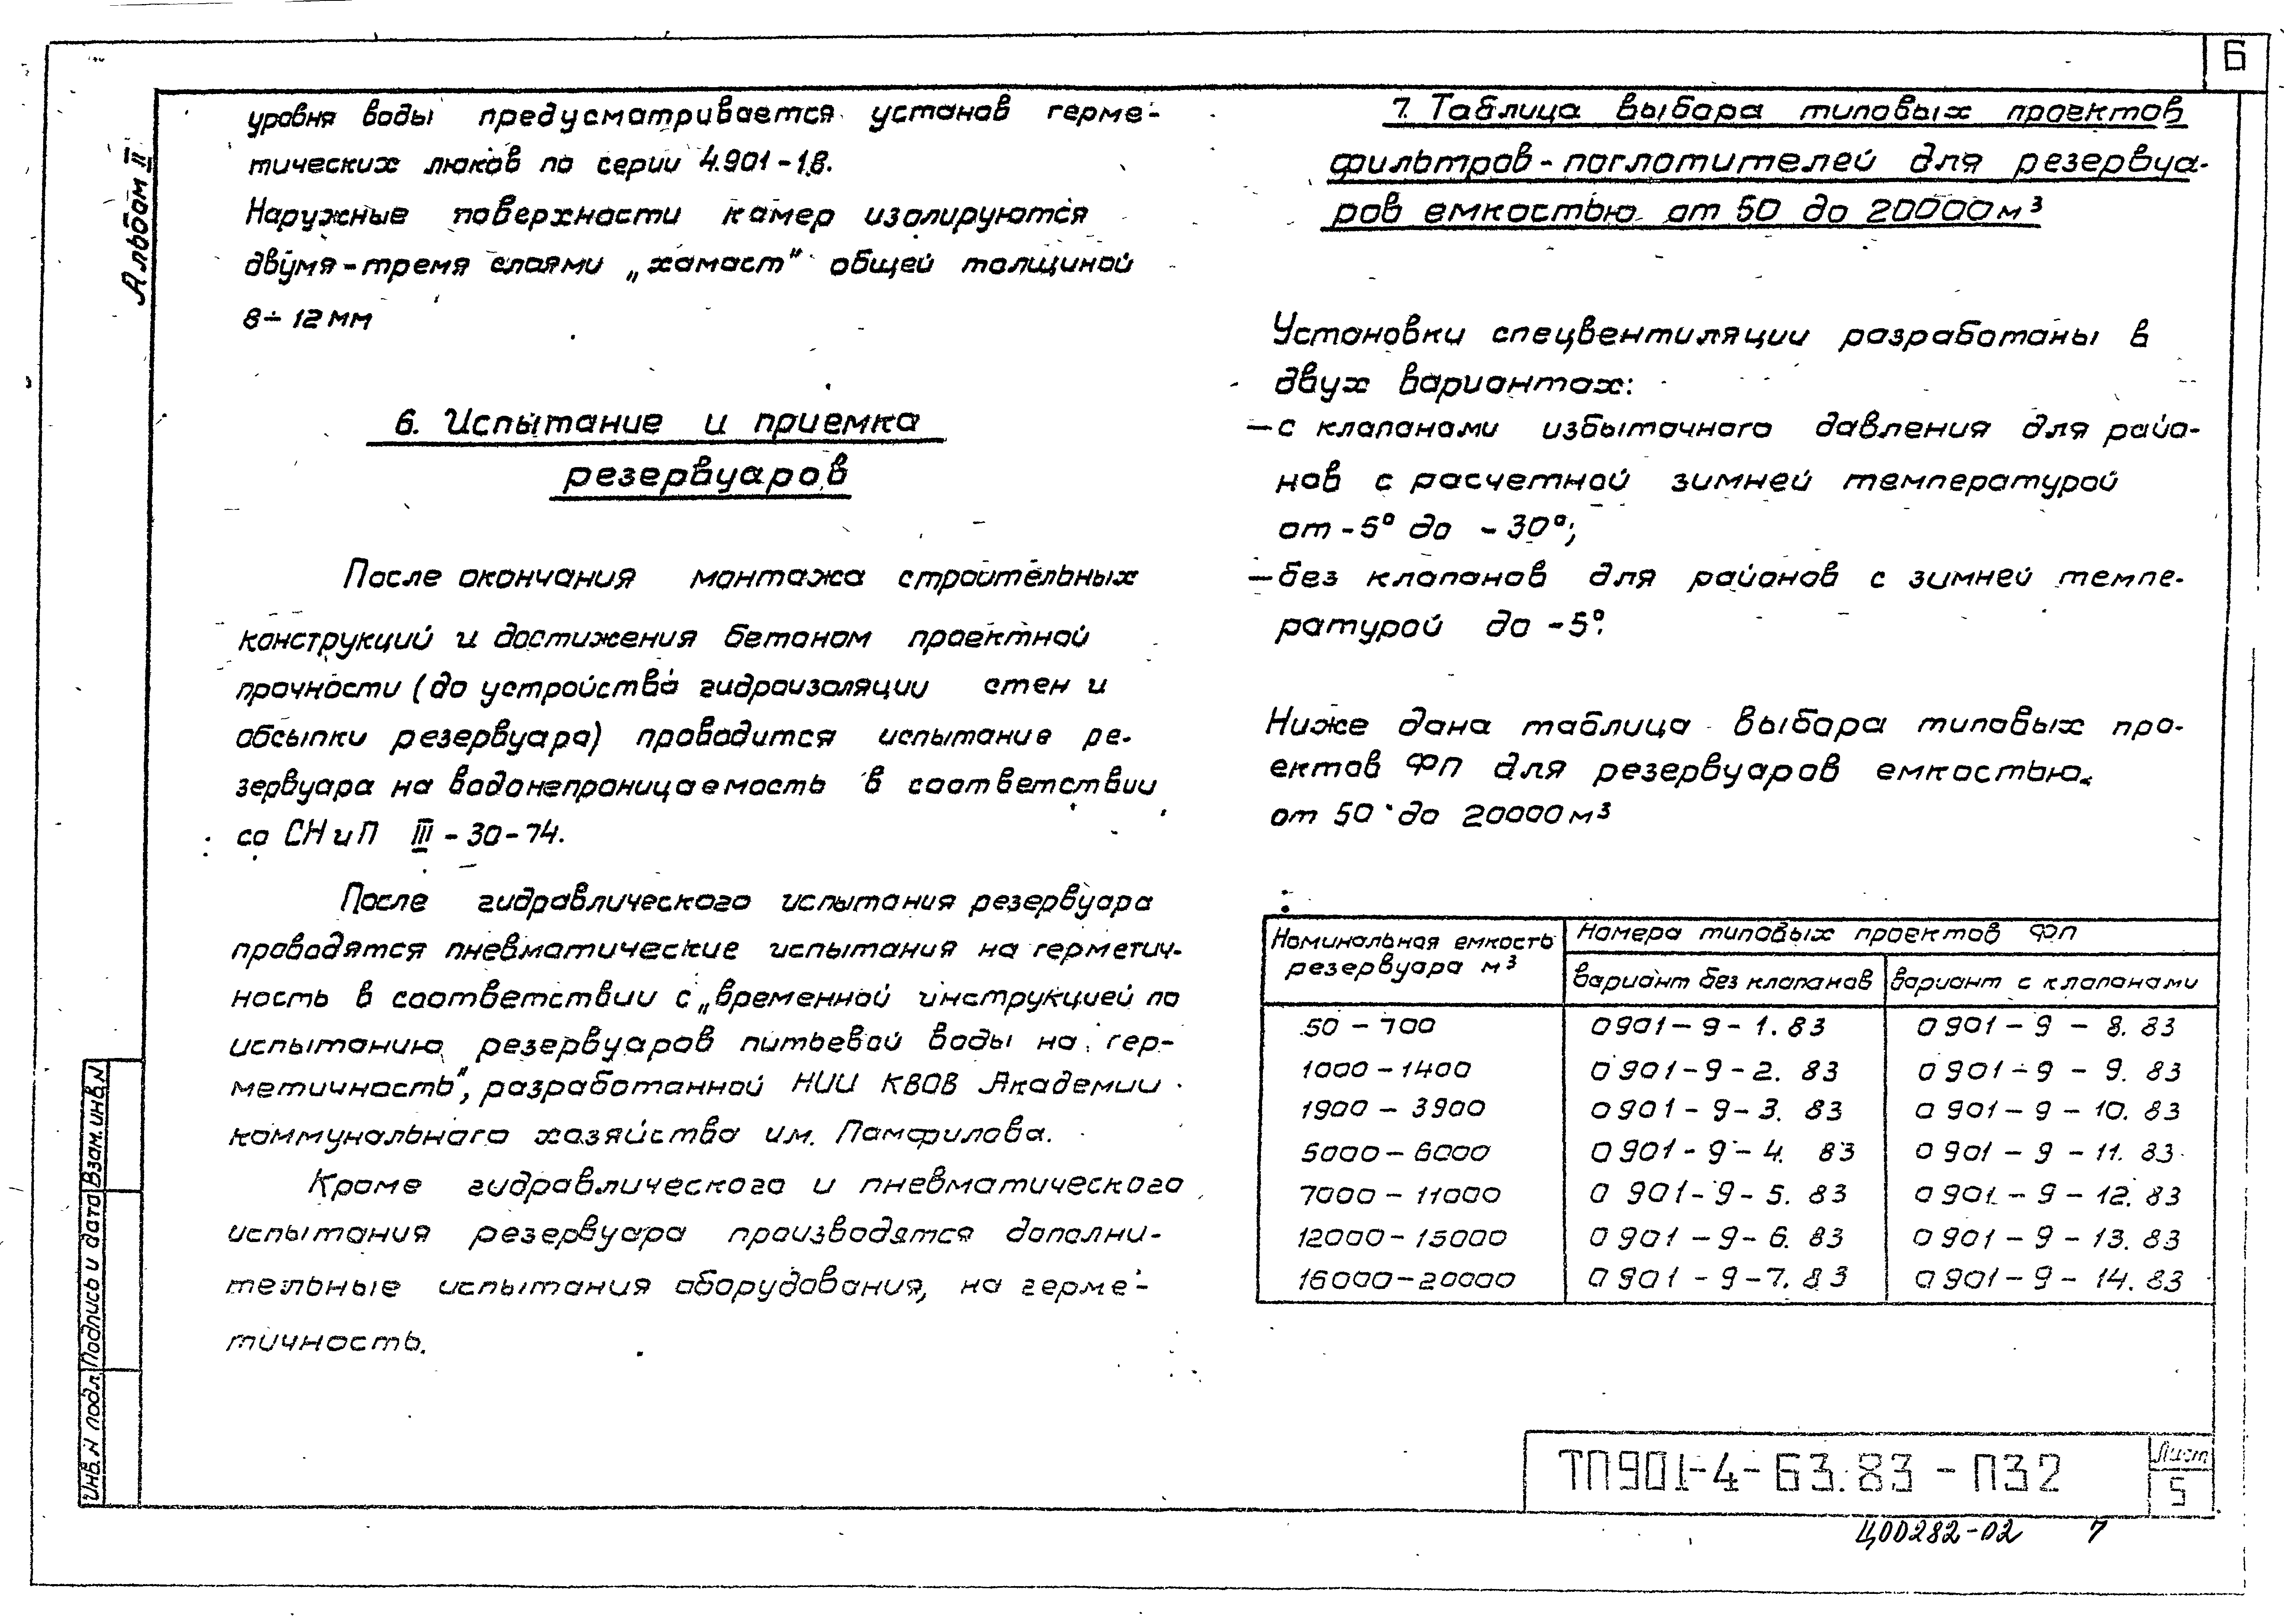 6
Альбом II
уровня воды предусматривается установ герме-
тических люков по серии 4.901-18.
Наружные поверхности камер изолируются
двумя-тремя слоями „хамаст" общей толщиной
8÷12мм
6. Испытание и приемка
резервуаров
После окончания монтажа строительных
конструкций и достижения бетоном проектной
прочности (до устройства гидроизоляции стен и
обсыпки резервуара) проводится испытание ре-
зервуара на водонепроницаемость в соответствии
со СНиП III-30-74.
После гидравлического испытания резервуара
проводятся пневматические испытания на герметич-
ность в соответствии с „временной инструкцией по
испытанию резервуаров питьевой воды на гер-
метичность", разработанной НИИ КВОВ Академии
коммунального хозяйства им. Памфилова.
Кроме гидравлического и пневматического
испытания резервуара производятся дополни-
тельные испытания оборудования, на герме-
тичность.
7. Таблица выбора типовых проектов
фильтров-поглотителей для резервуа-
ров емкостью от 50 до 20000м³
Установки спецвентиляции разработаны в
двух вариантах:
-с клапанами избыточного давления для райо-
нов с расчетной зимней температурой
от -5° до -30°;
-без клапанов для районов с зимней темпе-
ратурой до -5°.
Ниже дана таблица выбора типовых про-
ектов ФП для резервуаров емкостью
от 50 до 20000м³
Номинальная емкость резервуара м³ Номера типовых проектов ФП
вариант без клапанов вариант с клапанами
50-700 0901-9-1.83 0901-9-8.83
1000-1400 0901-9-2.83 0901-9-9.83
1900-3900 0901-9-3.83 0901-9-10.83
5000-6000 0901-9-4.83 0901-9-11.83
7000-11000 0901-9-5.83 0901-9-12.83
12000-15000 0901-9-6.83 0901-9-13.83
16000-20000 0901-9-7.83 0901-9-14.83
Взам. инв. N
Подпись и дата
Инв. N подл.
ТП901-4-63.83-ПЗ2
Лист
5
Ц00282-02 7